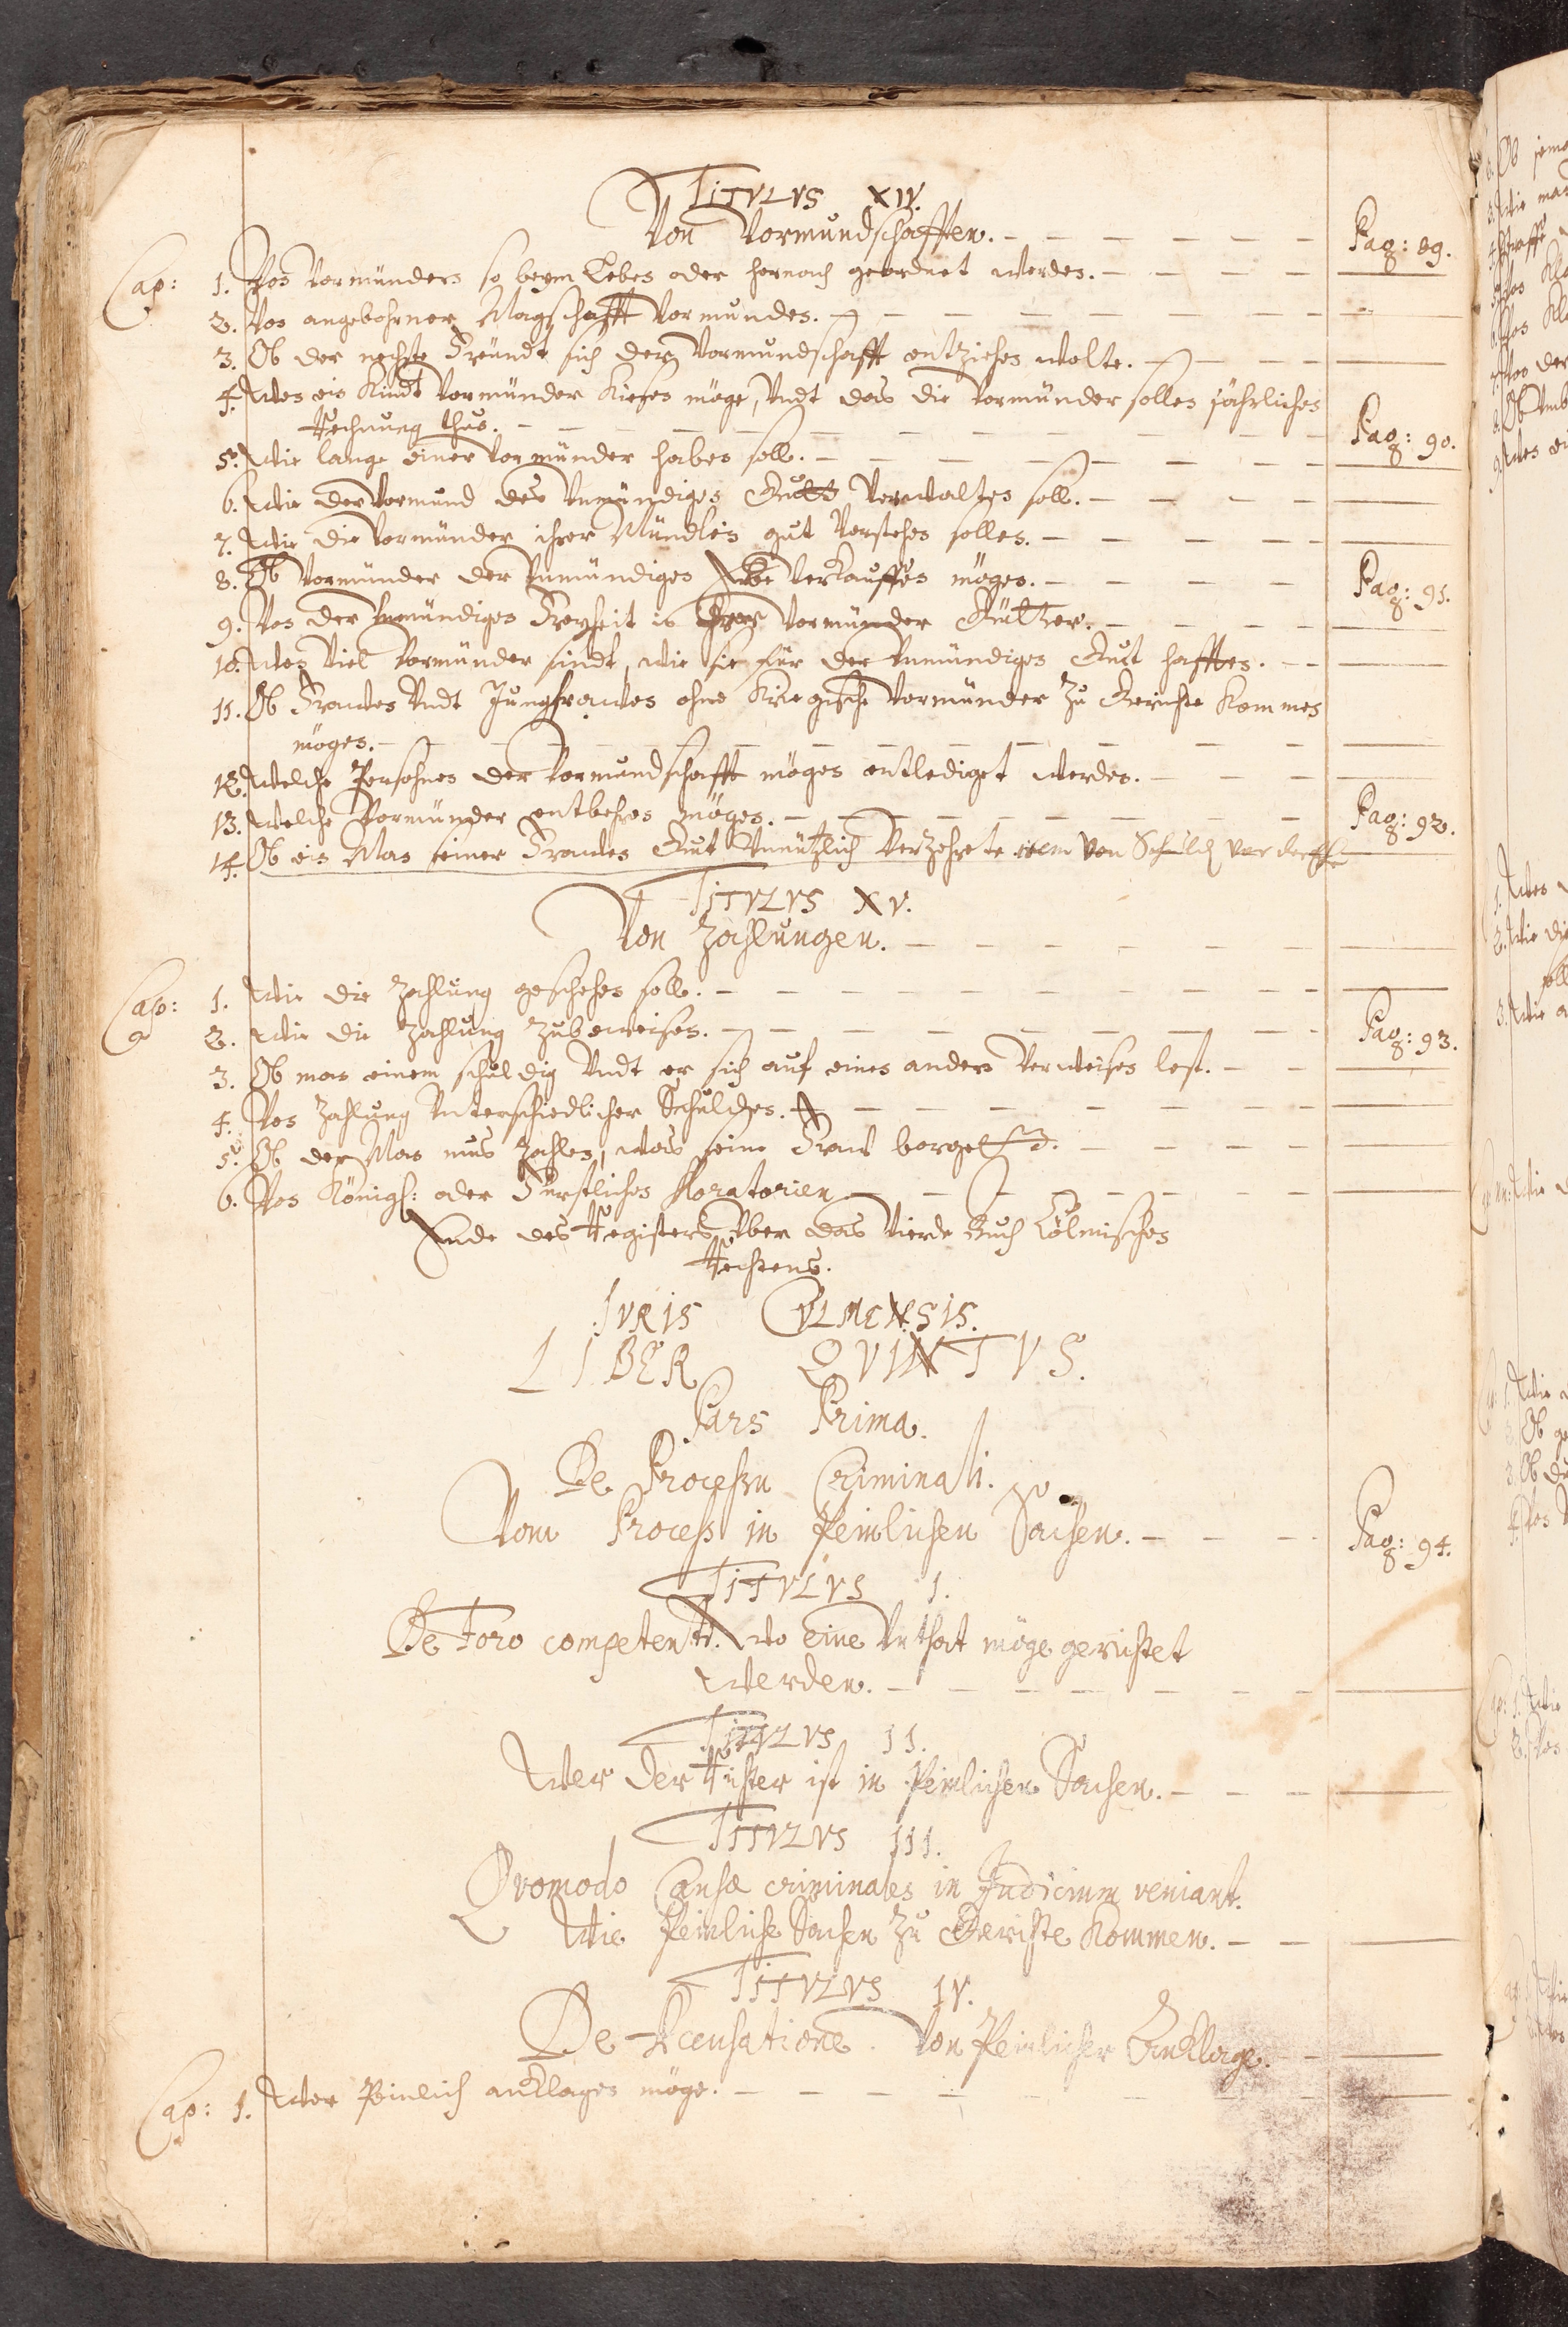 TITVLVS XIV.
Von Vormundschafften. Pag: 89.
Cap: 1. Von Vormündern so beym Leben oder hernach geordnet werden.
2. Von angebohrner Magschafft Vormunden.
3. Ob der nechste Freundt sich der Vormundschafft entziehen wolte.
4. Wen ein Kindt Vormünder Kiesen möge, Undt das die Vormünder sollen jährlichen
Rechnung thun. Pag: 90.
5. Wie lange einer Vormünder haben soll.
6. Wie der Vormund des Unmündigen Gutt Verwalten soll.
7. Wie die Vormünder ihrer Mündlein gut Vorstehen sollen.
8. Ob Vormünder der Unmündigen Erbe Verkauffen mögen. Pag: 91.
9. Von der Unmündigen Freyheit in Ihrer Vormünder Gütter.
10. Wen Viel Vormünder sindt, wie sie für der Unmündigen Gut hafften.
11. Ob Frawen Undt Jungfrawen ohne Kriegische Vormünder Zu Gerichte Kommen
mögen.
12. Welche Persohnen der Vormundschafft mögen entlediget werden.
13. Welche Vormünder entbehren mögen. Pag: 92.
14. Ob ein Man seiner Frawen Gut Unnützlich Verzehrete item Von Schuld
TITVLVS XV.
Von Zahlungen.
Cap: 1. Wie die Zahlung geschehen soll.
2. Wie die Zahlung Zubeweisen. Pag: 93.
3. Ob man einem schuldig Undt er sich auf einen andern Verweisen lest.
4. Von Zahlung Unterschiedlicher Schulden.
5. Ob der Man mus Zahlen, was seine Fraw borget.
6. Von Königl: oder Fürstlichen Moratorien
Ende des Registers Uber das Vierde Buch Cölmischen
Rechtens.
IVRIS CVLMENSIS.
LIBER QVINTVS.
Pars Prima.
De Processu Criminali.
Vom Process in Peinlichen Sachen. Pag: 94.
TITVLVS I.
De Foro competenti. Wo eine Unthat möge gerichtet
werden.
TITVLVS II.
Wer der Richter ist in Peinlichen Sachen.
TITVLVS III.
Qvomodo Causæ criminales in Judicium veniant.
Wie Peinliche Sachen Zu Gerichte Kommen.
TITVLVS IV.
De Accusatione. Von Peinlicher Anklage.
Cap: 1. Wer Peinlich anklagen möge.